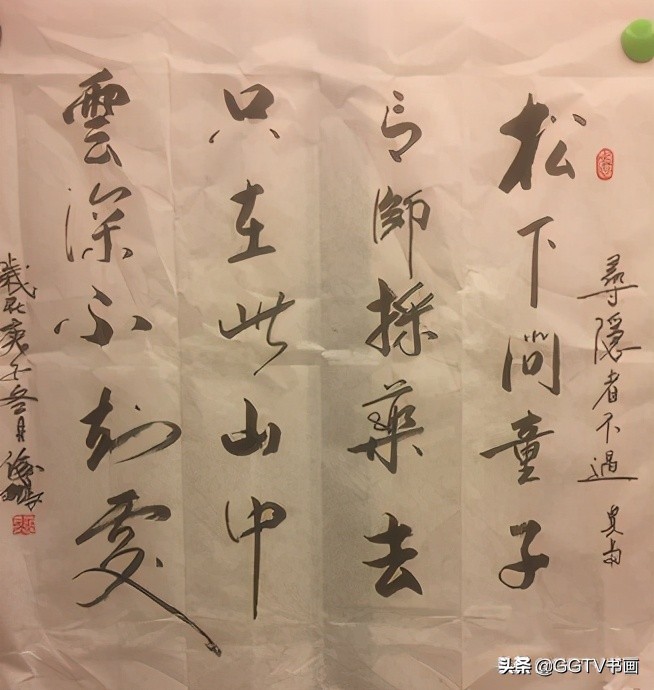 尋隱者不遇 賈島
松下問童子
言師採藥去
只在此山中
雲深不知處
歲在庚子冬月
头条 @GGTV书画